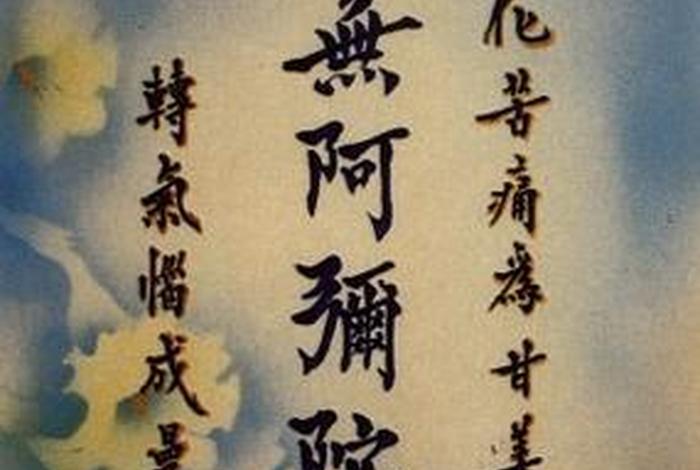 化苦痛為甘美
無阿彌陀
轉氣惱成